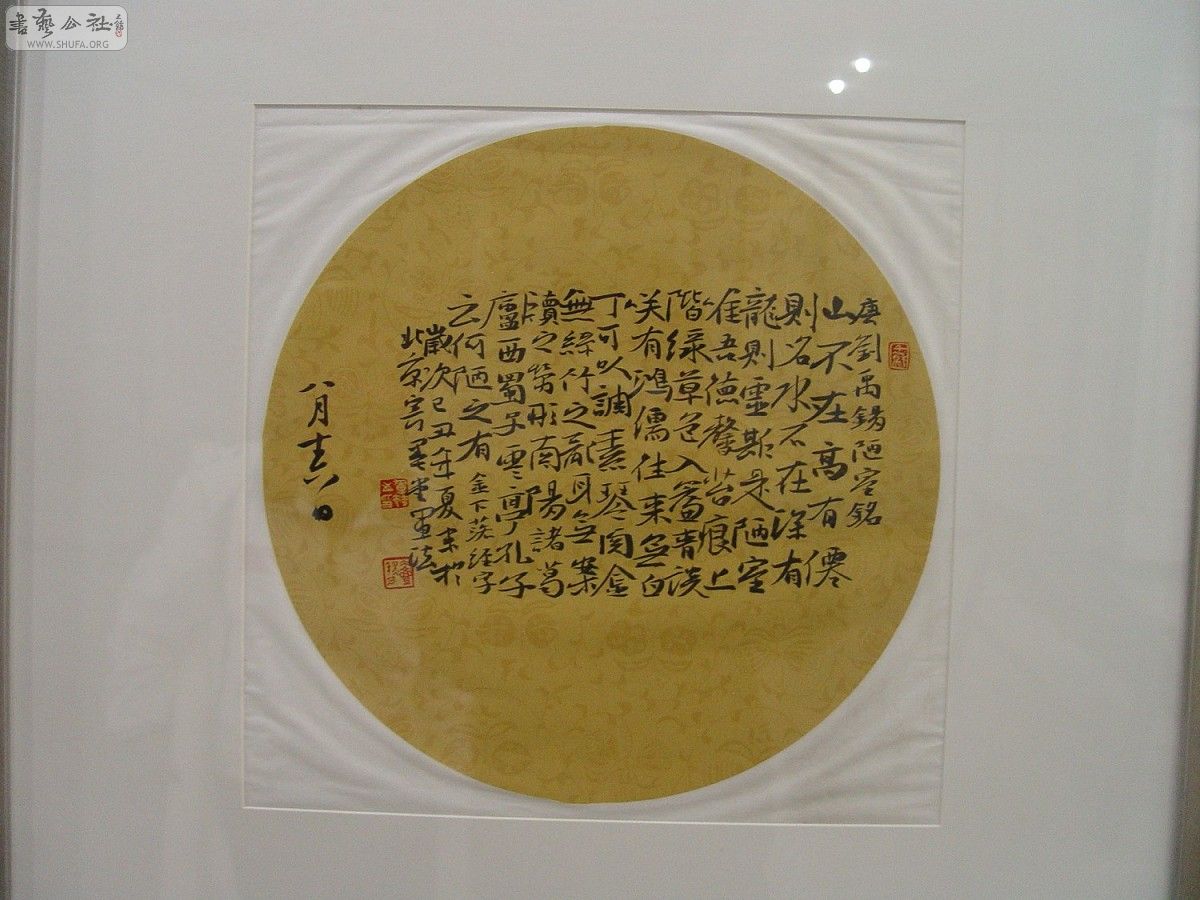 書藝公社
WWW.SHUFA.ORG
唐劉禹錫陋室銘
山不在高有僊
則名水不在深有
龍則靈斯是陋室
惟吾德馨苔痕上
階綠草色入簾青談
笑有鴻儒往來无白
丁可以調素琴閱金
無絲竹之亂耳无案
牘之勞形南陽諸葛
廬西蜀子雲亭孔子
云何陋之有 金下落經字
歲次己丑年夏末於
北京寄墨堂
八月 日